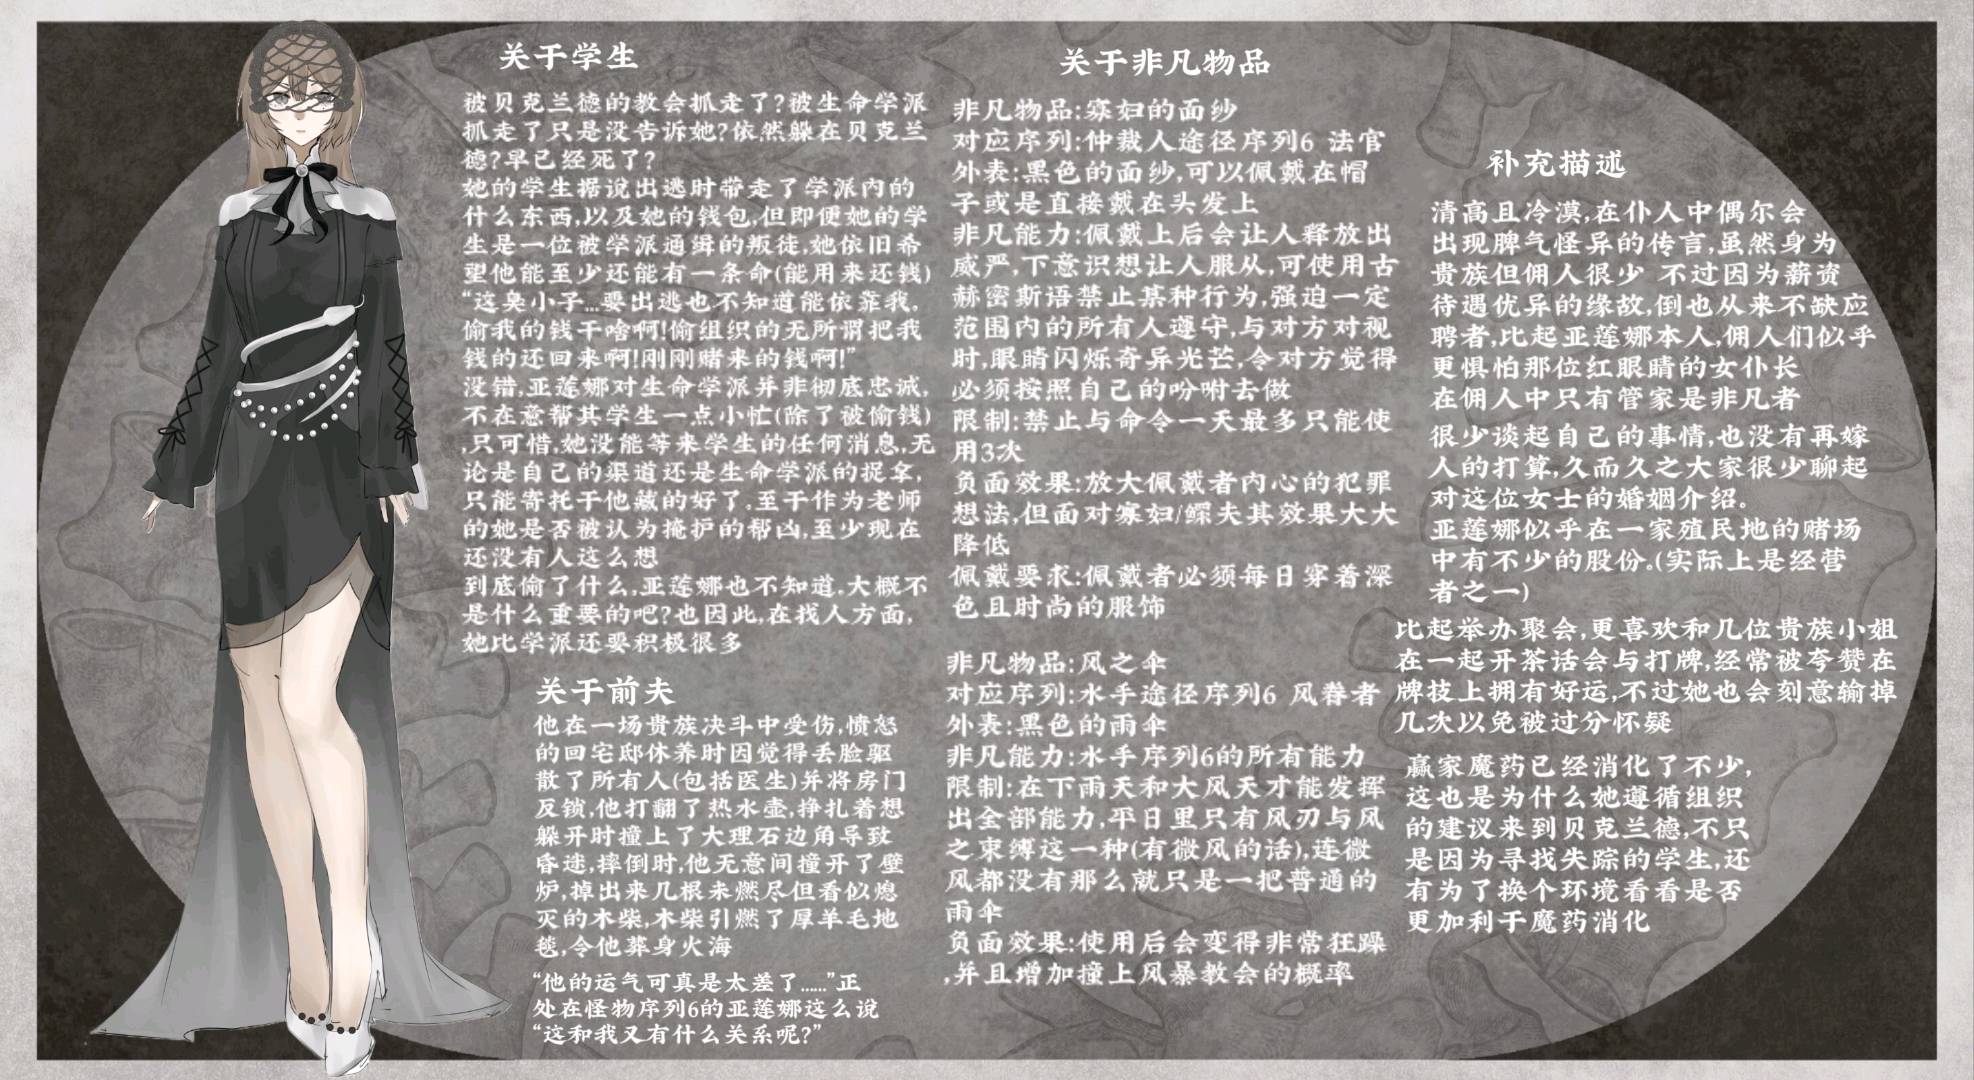 关于学生
被贝克兰德的教会抓走了?被生命学派
抓走了只是没告诉她?依然躲在贝克兰
德?早已经死了?
她的学生据说出逃时带走了学派内的
什么东西,以及她的钱包,但即便她的学
生是一位被学派通缉的叛徒,她依旧希
望他能至少还能有一条命(能用来还钱)
“这臭小子...要出逃也不知道能依靠我,
偷我的钱干啥啊!偷组织的无所谓把我
钱的还回来啊!刚刚赌来的钱啊!”
没错,亚莲娜对生命学派并非彻底忠诚,
不在意帮其学生一点小忙(除了被偷钱)
,只可惜,她没能等来学生的任何消息,无
论是自己的渠道还是生命学派的捉拿,
只能寄托于他藏的好了,至于作为老师
的她是否被认为掩护的帮凶,至少现在
还没有人这么想
到底偷了什么,亚莲娜也不知道,大概不
是什么重要的吧?也因此,在找人方面,
她比学派还要积极很多
关于前夫
他在一场贵族决斗中受伤,愤怒
的回宅邸休养时因觉得丢脸驱
散了所有人(包括医生)并将房门
反锁,他打翻了热水壶,挣扎着想
躲开时撞上了大理石边角导致
昏迷,摔倒时,他无意间撞开了壁
炉,掉出来几根未燃尽但看似熄
灭的木柴,木柴引燃了厚羊毛地
毯,令他葬身火海
“他的运气可真是太差了......”正
处在怪物序列6的亚莲娜这么说
“这和我又有什么关系呢?”
关于非凡物品
非凡物品:寡妇的面纱
对应序列:仲裁人途径序列6 法官
外表:黑色的面纱,可以佩戴在帽
子或是直接戴在头发上
非凡能力:佩戴上后会让人释放出
威严,下意识想让人服从,可使用古
赫密斯语禁止某种行为,强迫一定
范围内的所有人遵守,与对方对视
时,眼睛闪烁奇异光芒,令对方觉得
必须按照自己的吩咐去做
限制:禁止与命令一天最多只能使
用3次
负面效果:放大佩戴者内心的犯罪
想法,但面对寡妇/鳏夫其效果大大
降低
佩戴要求:佩戴者必须每日穿着深
色且时尚的服饰
非凡物品:风之伞
对应序列:水手途径序列6 风眷者
外表:黑色的雨伞
非凡能力:水手序列6的所有能力
限制:在下雨天和大风天才能发挥
出全部能力,平日里只有风刃与风
之束缚这一种(有微风的话),连微
风都没有那么就只是一把普通的
雨伞
负面效果:使用后会变得非常狂躁
,并且增加撞上风暴教会的概率
补充描述
清高且冷漠,在仆人中偶尔会
出现脾气怪异的传言,虽然身为
贵族但佣人很少 不过因为薪资
待遇优异的缘故,倒也从来不缺应
聘者,比起亚莲娜本人,佣人们似乎
更惧怕那位红眼睛的女仆长
在佣人中只有管家是非凡者
很少谈起自己的事情,也没有再嫁
人的打算,久而久之大家很少聊起
对这位女士的婚姻介绍。
亚莲娜似乎在一家殖民地的赌场
中有不少的股份.(实际上是经营
者之一)
比起举办聚会,更喜欢和几位贵族小姐
在一起开茶话会与打牌,经常被夸赞在
牌技上拥有好运,不过她也会刻意输掉
几次以免被过分怀疑
赢家魔药已经消化了不少,
这也是为什么她遵循组织
的建议来到贝克兰德,不只
是因为寻找失踪的学生,还
有为了换个环境看看是否
更加利于魔药消化